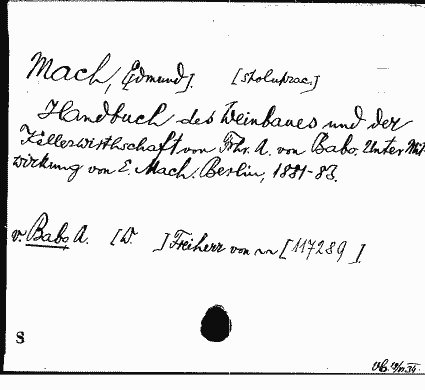 Mach, [Edmund]. [spoluprac.]
Handbuch des Weinbaues und der
Kellerwirthschaft von Frhr. A. von Babo. Unter Mit-
wirkung von E. Mach. Berlin, 1881-83.
v. Babo A. [W. ] Freiherr von ~ [117289 ].
8